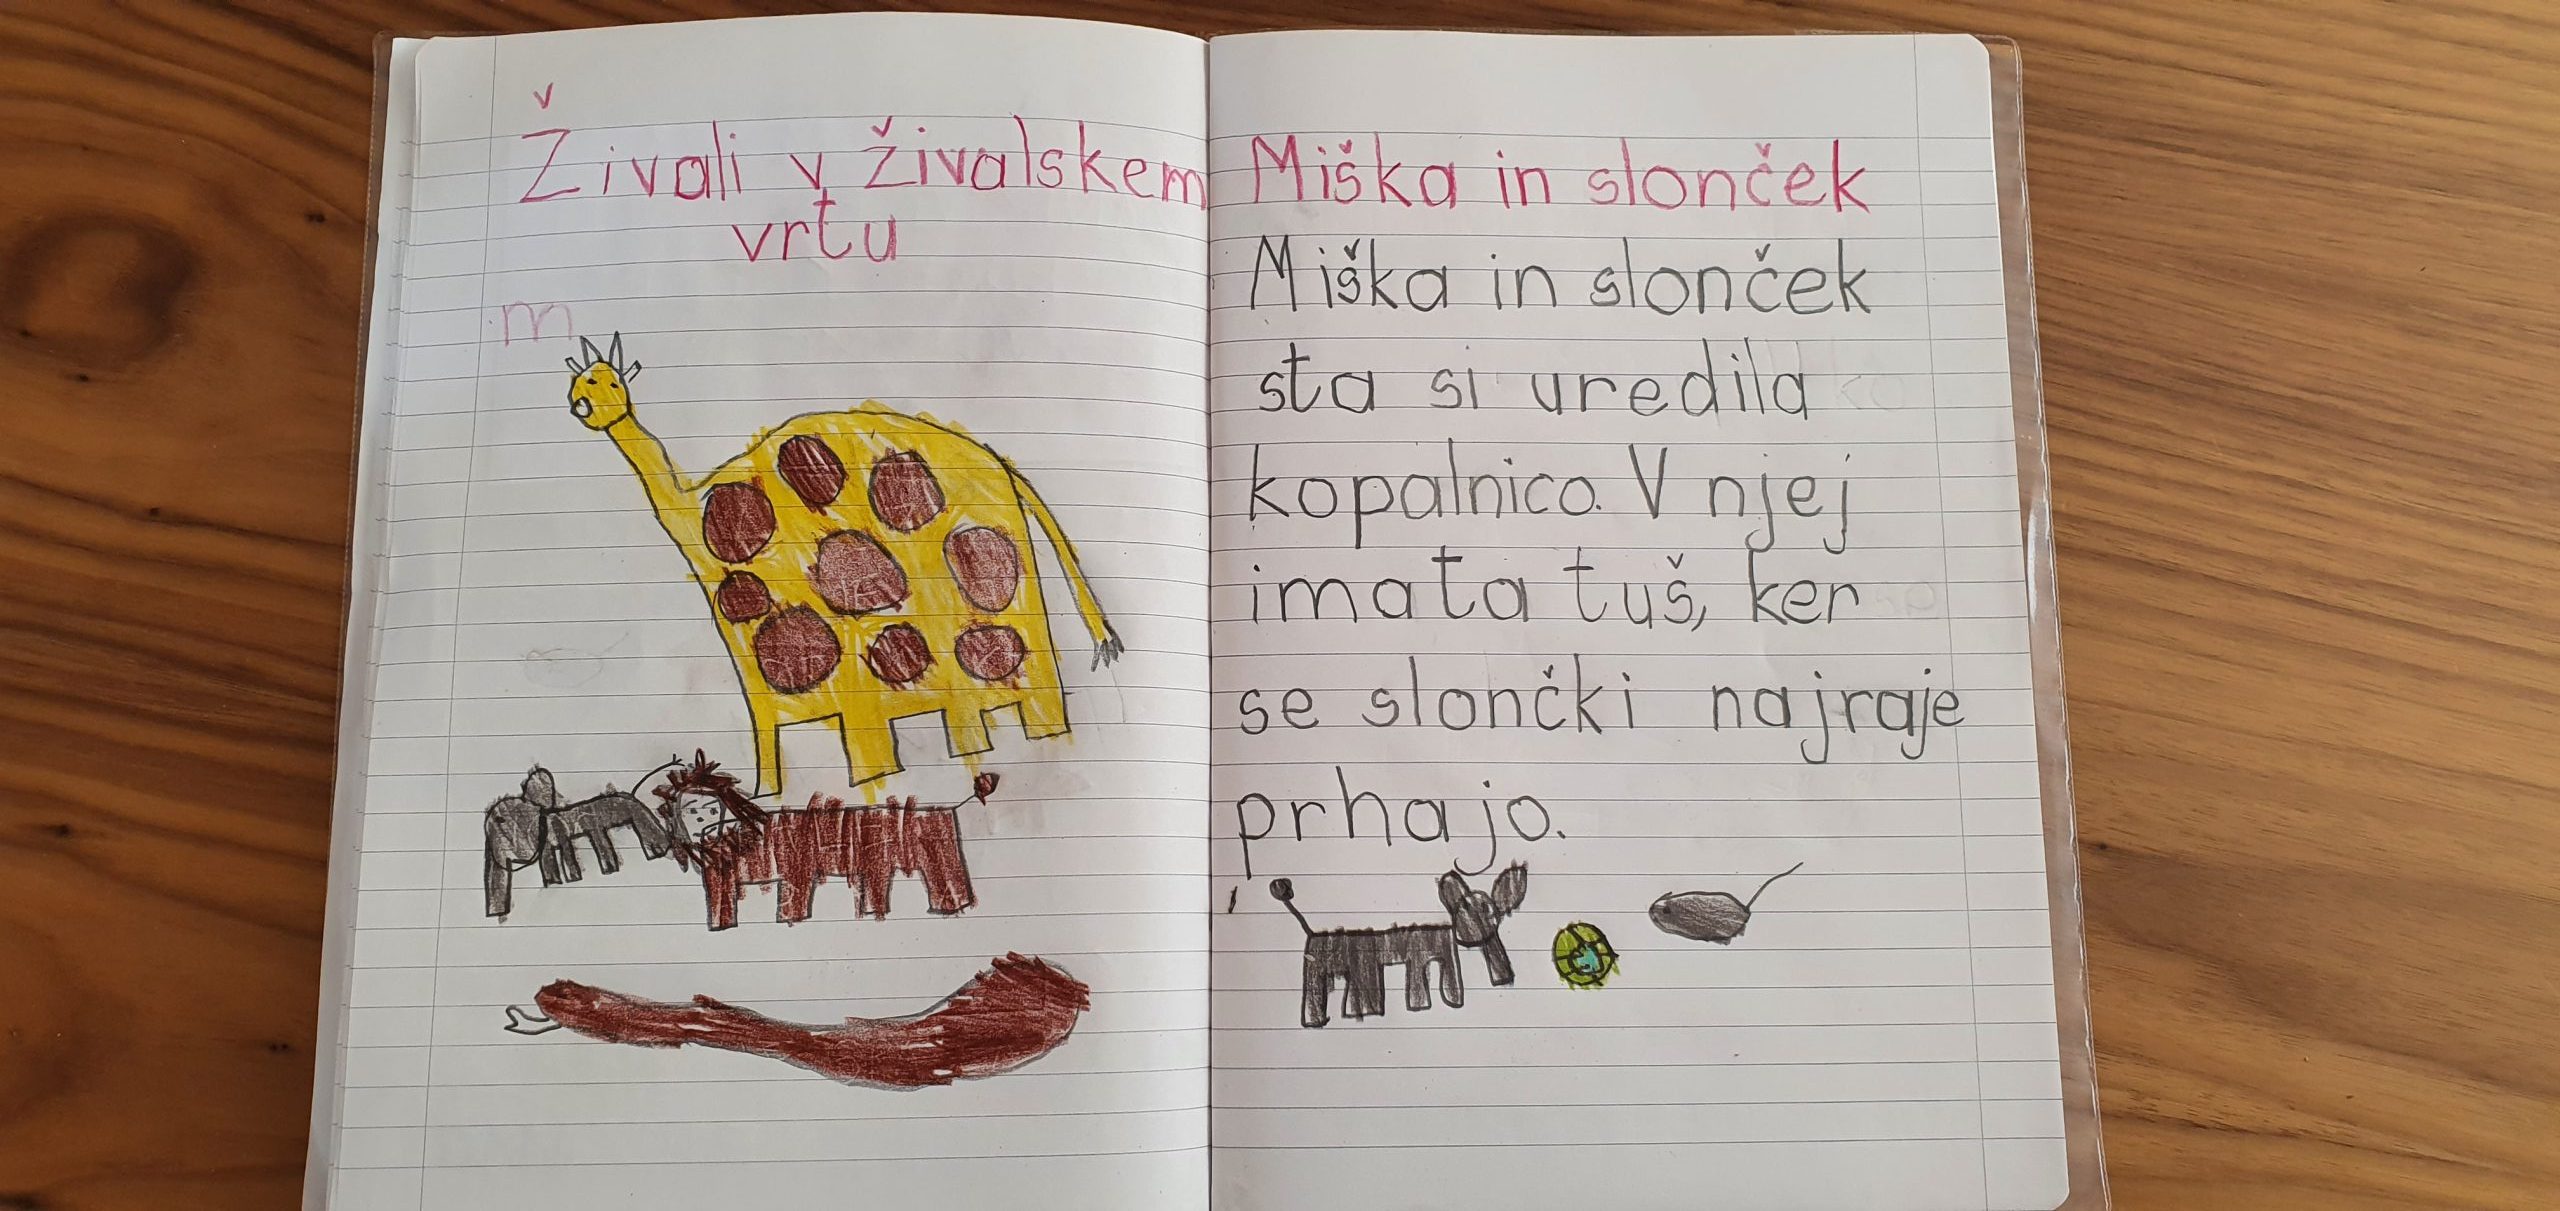 Živali v živalskem
vrtu
m
Miška in slonček
Miška in slonček
sta si uredila
kopalnico. V njej
imata tuš, ker
se slončki najraje
prhajo.